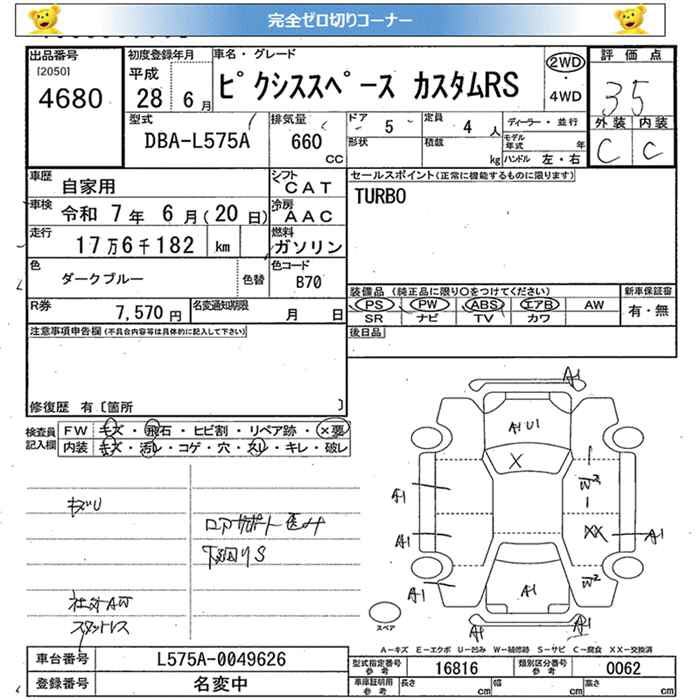 完全ゼロ切りコーナー
出品番号 初度登録年月 車名・グレード 評価点
[2050] 平成 28年 6月 ピクシススペース カスタムRS 2WD・4WD 3.5
4680
型式 排気量 ドア 定員 ディーラー・並行 外装 内装
DBA-L575A 660 CC 5 4人 モデル年式 年 C C
形状 積載 kg ハンドル 左・右
車歴 自家用 シフト CAT セールスポイント(正常に機能するものに限ります)
車検 令和 7年 6月(20日) 冷房 AAC TURBO
走行 17万6千182 km 燃料 ガソリン
色 ダークブルー 色替 色コード B70
装備品(純正品に限り○をつけてください) 新車保証書
R券 7,570円 名変通知期限 月 日 PS PW ABS エアB AW 有・無
SR ナビ TV カワ
注意事項申告欄(不具合内容等は具体的に記入して下さい) 後日品
修復歴 有〔箇所 〕
検査員記入欄 FW キズ・飛石・ヒビ割・リペア跡・×要
内装 キズ・汚レ・コゲ・穴・スレ・キレ・破レ
A1
A1 U1
X
A1 W2
A1 XX A1
A1 A1 W2
A1 A1
キズU
ロアサポート
下回りS
社外AW
スタットレス
スペア
A-キズ E-エクボ U-凹み W-補修跡 S-サビ C-腐食 XX-交換済
車台番号 L575A-0049626 型式指定番号 参考 16816 類別区分番号 参考 0062
登録番号 名変中 車庫証明用 参考 長さ cm 幅 cm 高さ cm